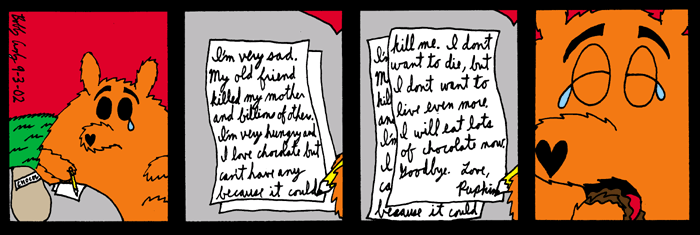 Billy Curtz 9-3-02
I'm very sad.
My old friend
killed my mother
and billions of others.
I'm very hungry and
I love chocolate but
can't have any
because it could
kill me. I dont
want to die, but
I dont want to
live even more
I will eat lots
of chocolate now.
Goodbye. Love,
Pupkin
because it could